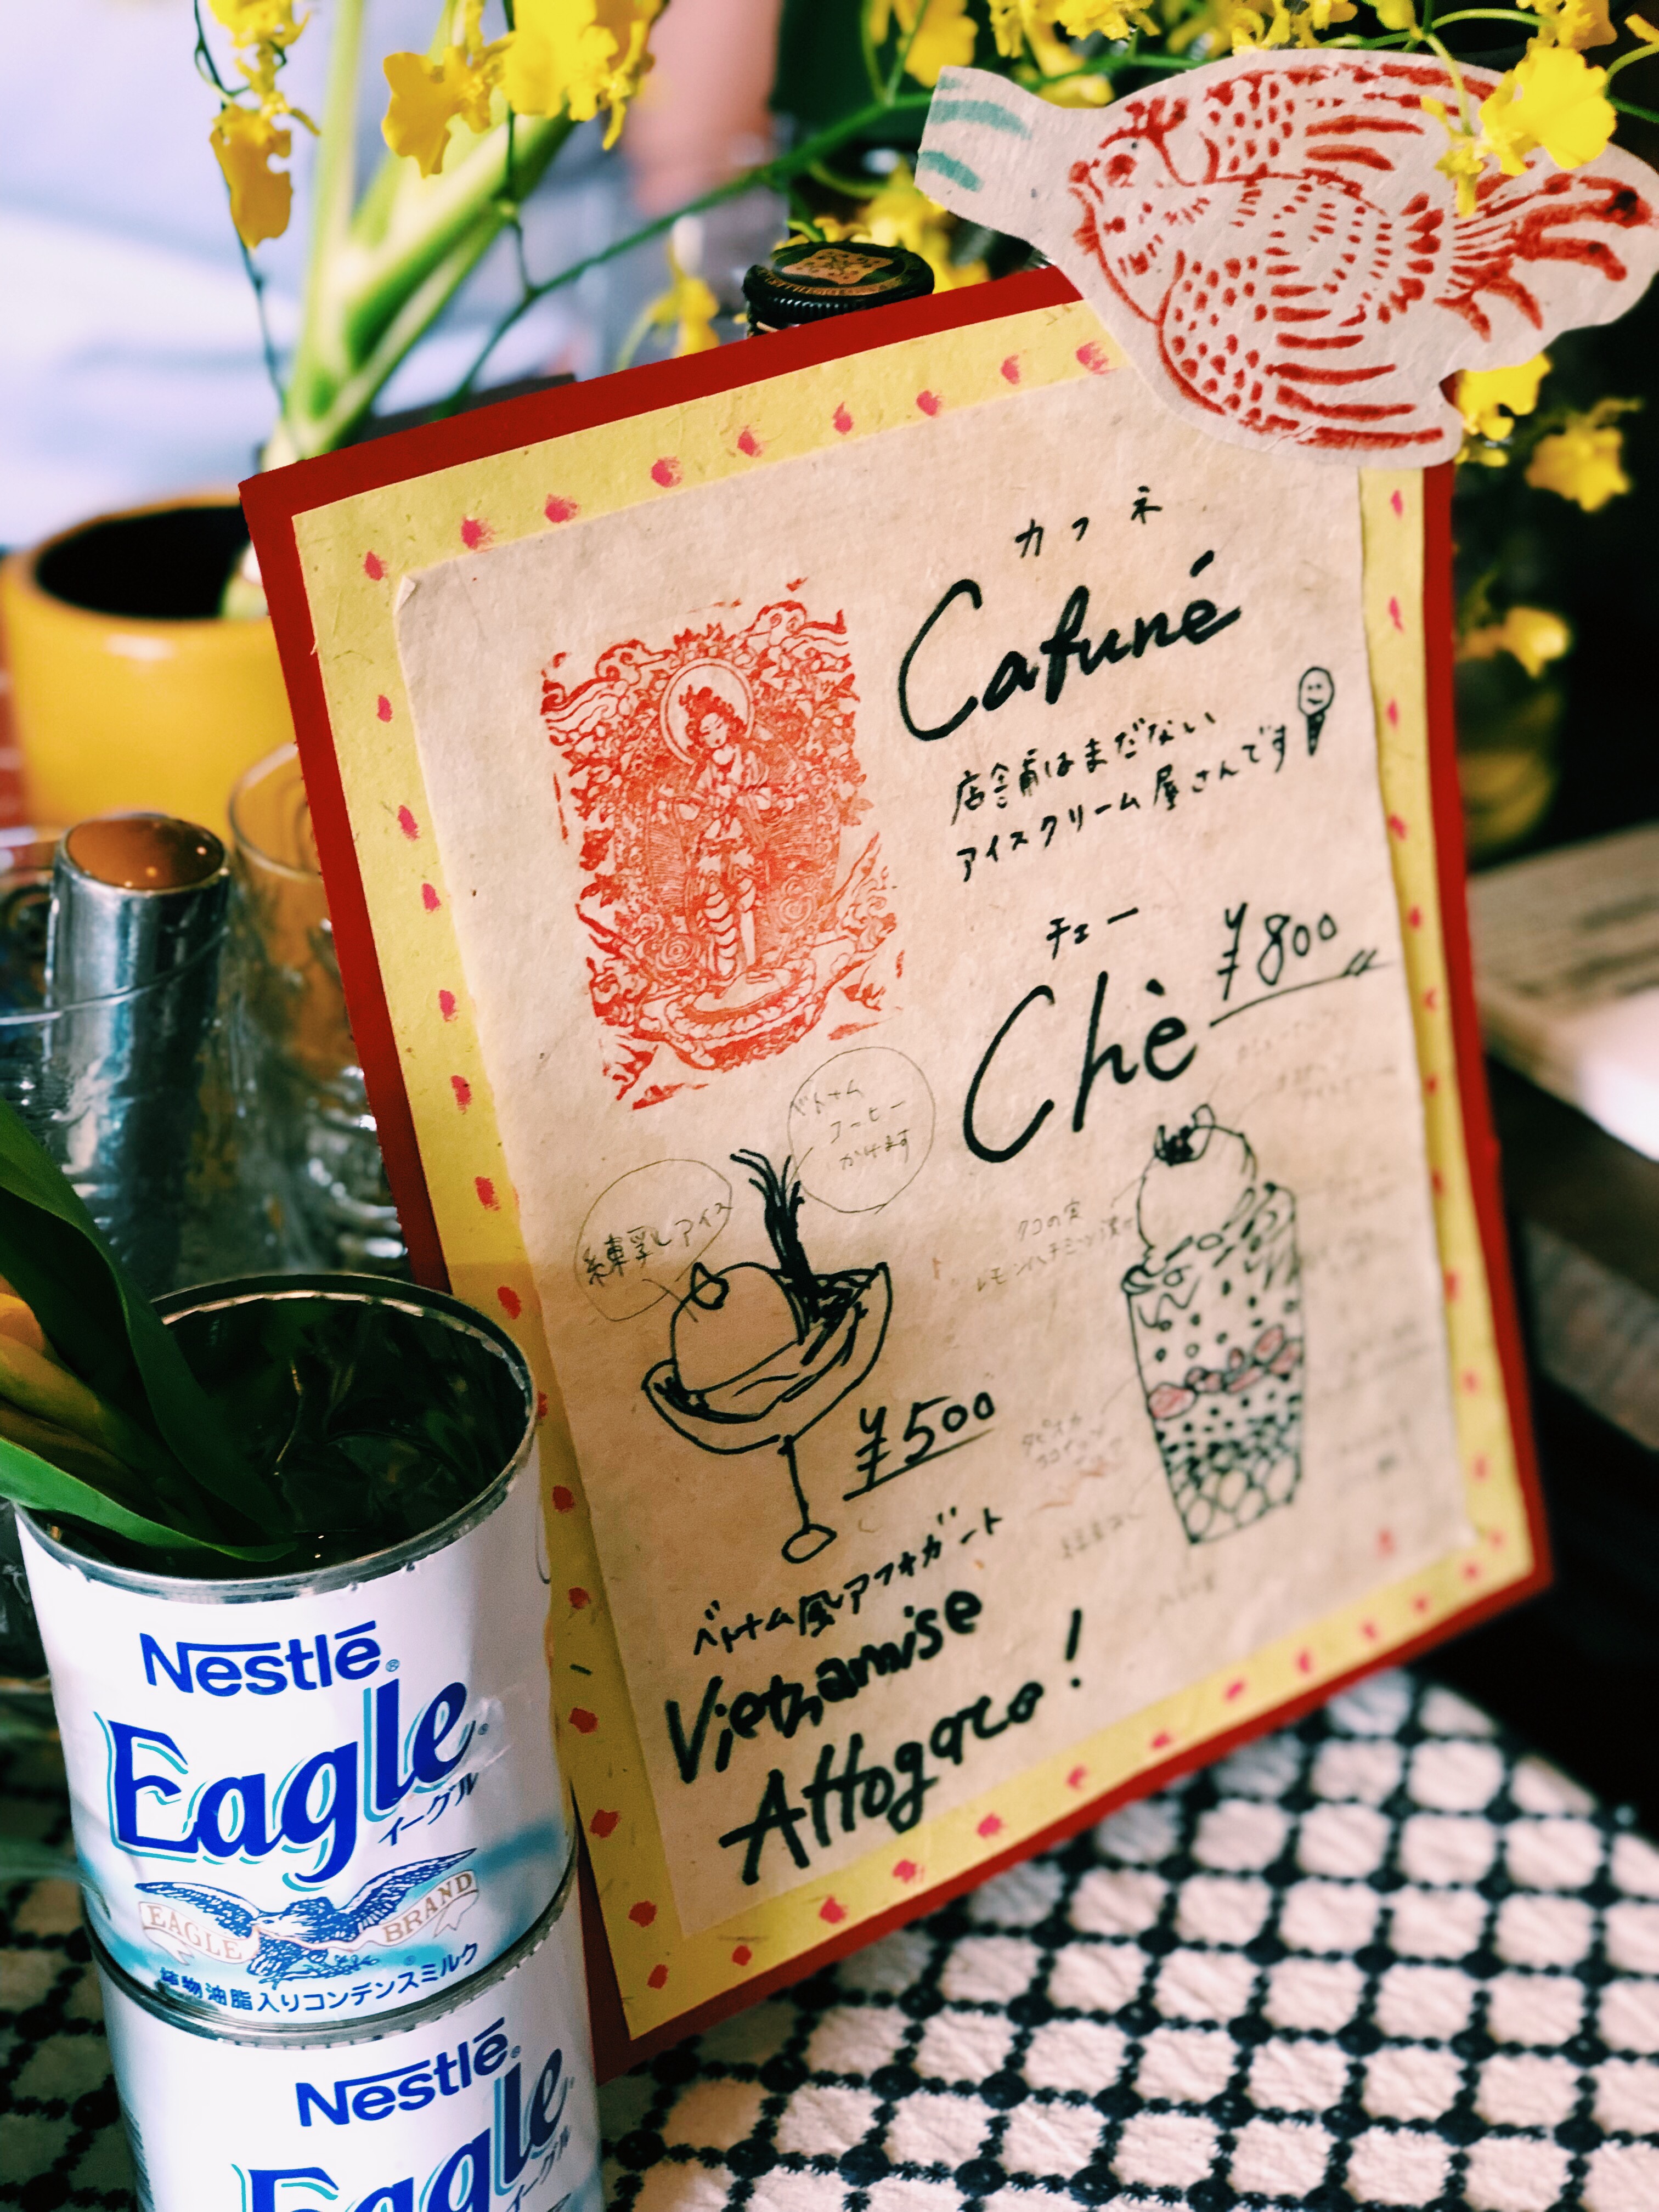 カフネ
Cafuné
店舗はまだない
アイスクリーム屋さんです
チェー
Chè ¥800
ベトナム
コーヒー
かけます
練乳アイス
クコの実
レモンハチミツ漬け
タピオカ
ココナッツ
¥500
ベトナム風アフォガート
Vietnamise
Affogaco!
Nestlé®
Eagle®
イーグル
EAGLE BRAND
植物油脂入りコンデンスミルク
Nestlé®
Eagle®
イーグル